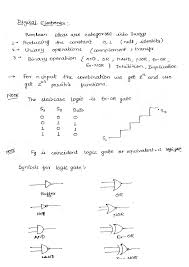 Digital Electronics:
Boolean ideas are categorised into 3 ways
1 → Producing the constant 0, 1 (null, identity)
2 → Unary operations (complement, transfer
3 → Binary operation (AND, OR, NAND, NOR, EX-OR,
EX-NOR) Inhibition, Implication
→ For n input the combination we get 2ⁿ and we
get possible functions.
Note The staircase logic is Ex-OR gate
S₁ S₂ Bulb
0 0 0
0 1 1
1 0 1
1 1 0
Note is coincident logic gate or equivalent
Symbols for logic gate:
Buffer
OR
NOT
NOR
AND
EX-OR
NAND